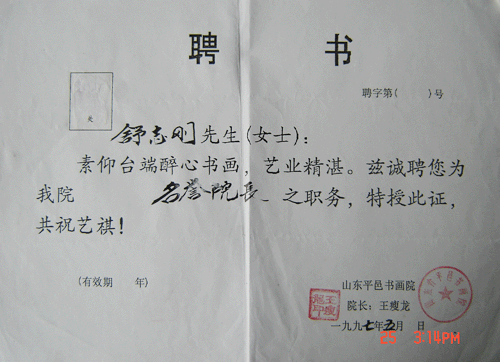 聘 书
聘字第( )号
舒志刚先生(女士):
素仰台端醉心书画,艺业精湛。兹诚聘您为
我院 名誉院长 之职务,特授此证,
共祝艺祺!
(有效期 年)
山东平邑书画院
院长:王瘦龙
一九九七年五月 日
25 3:14PM